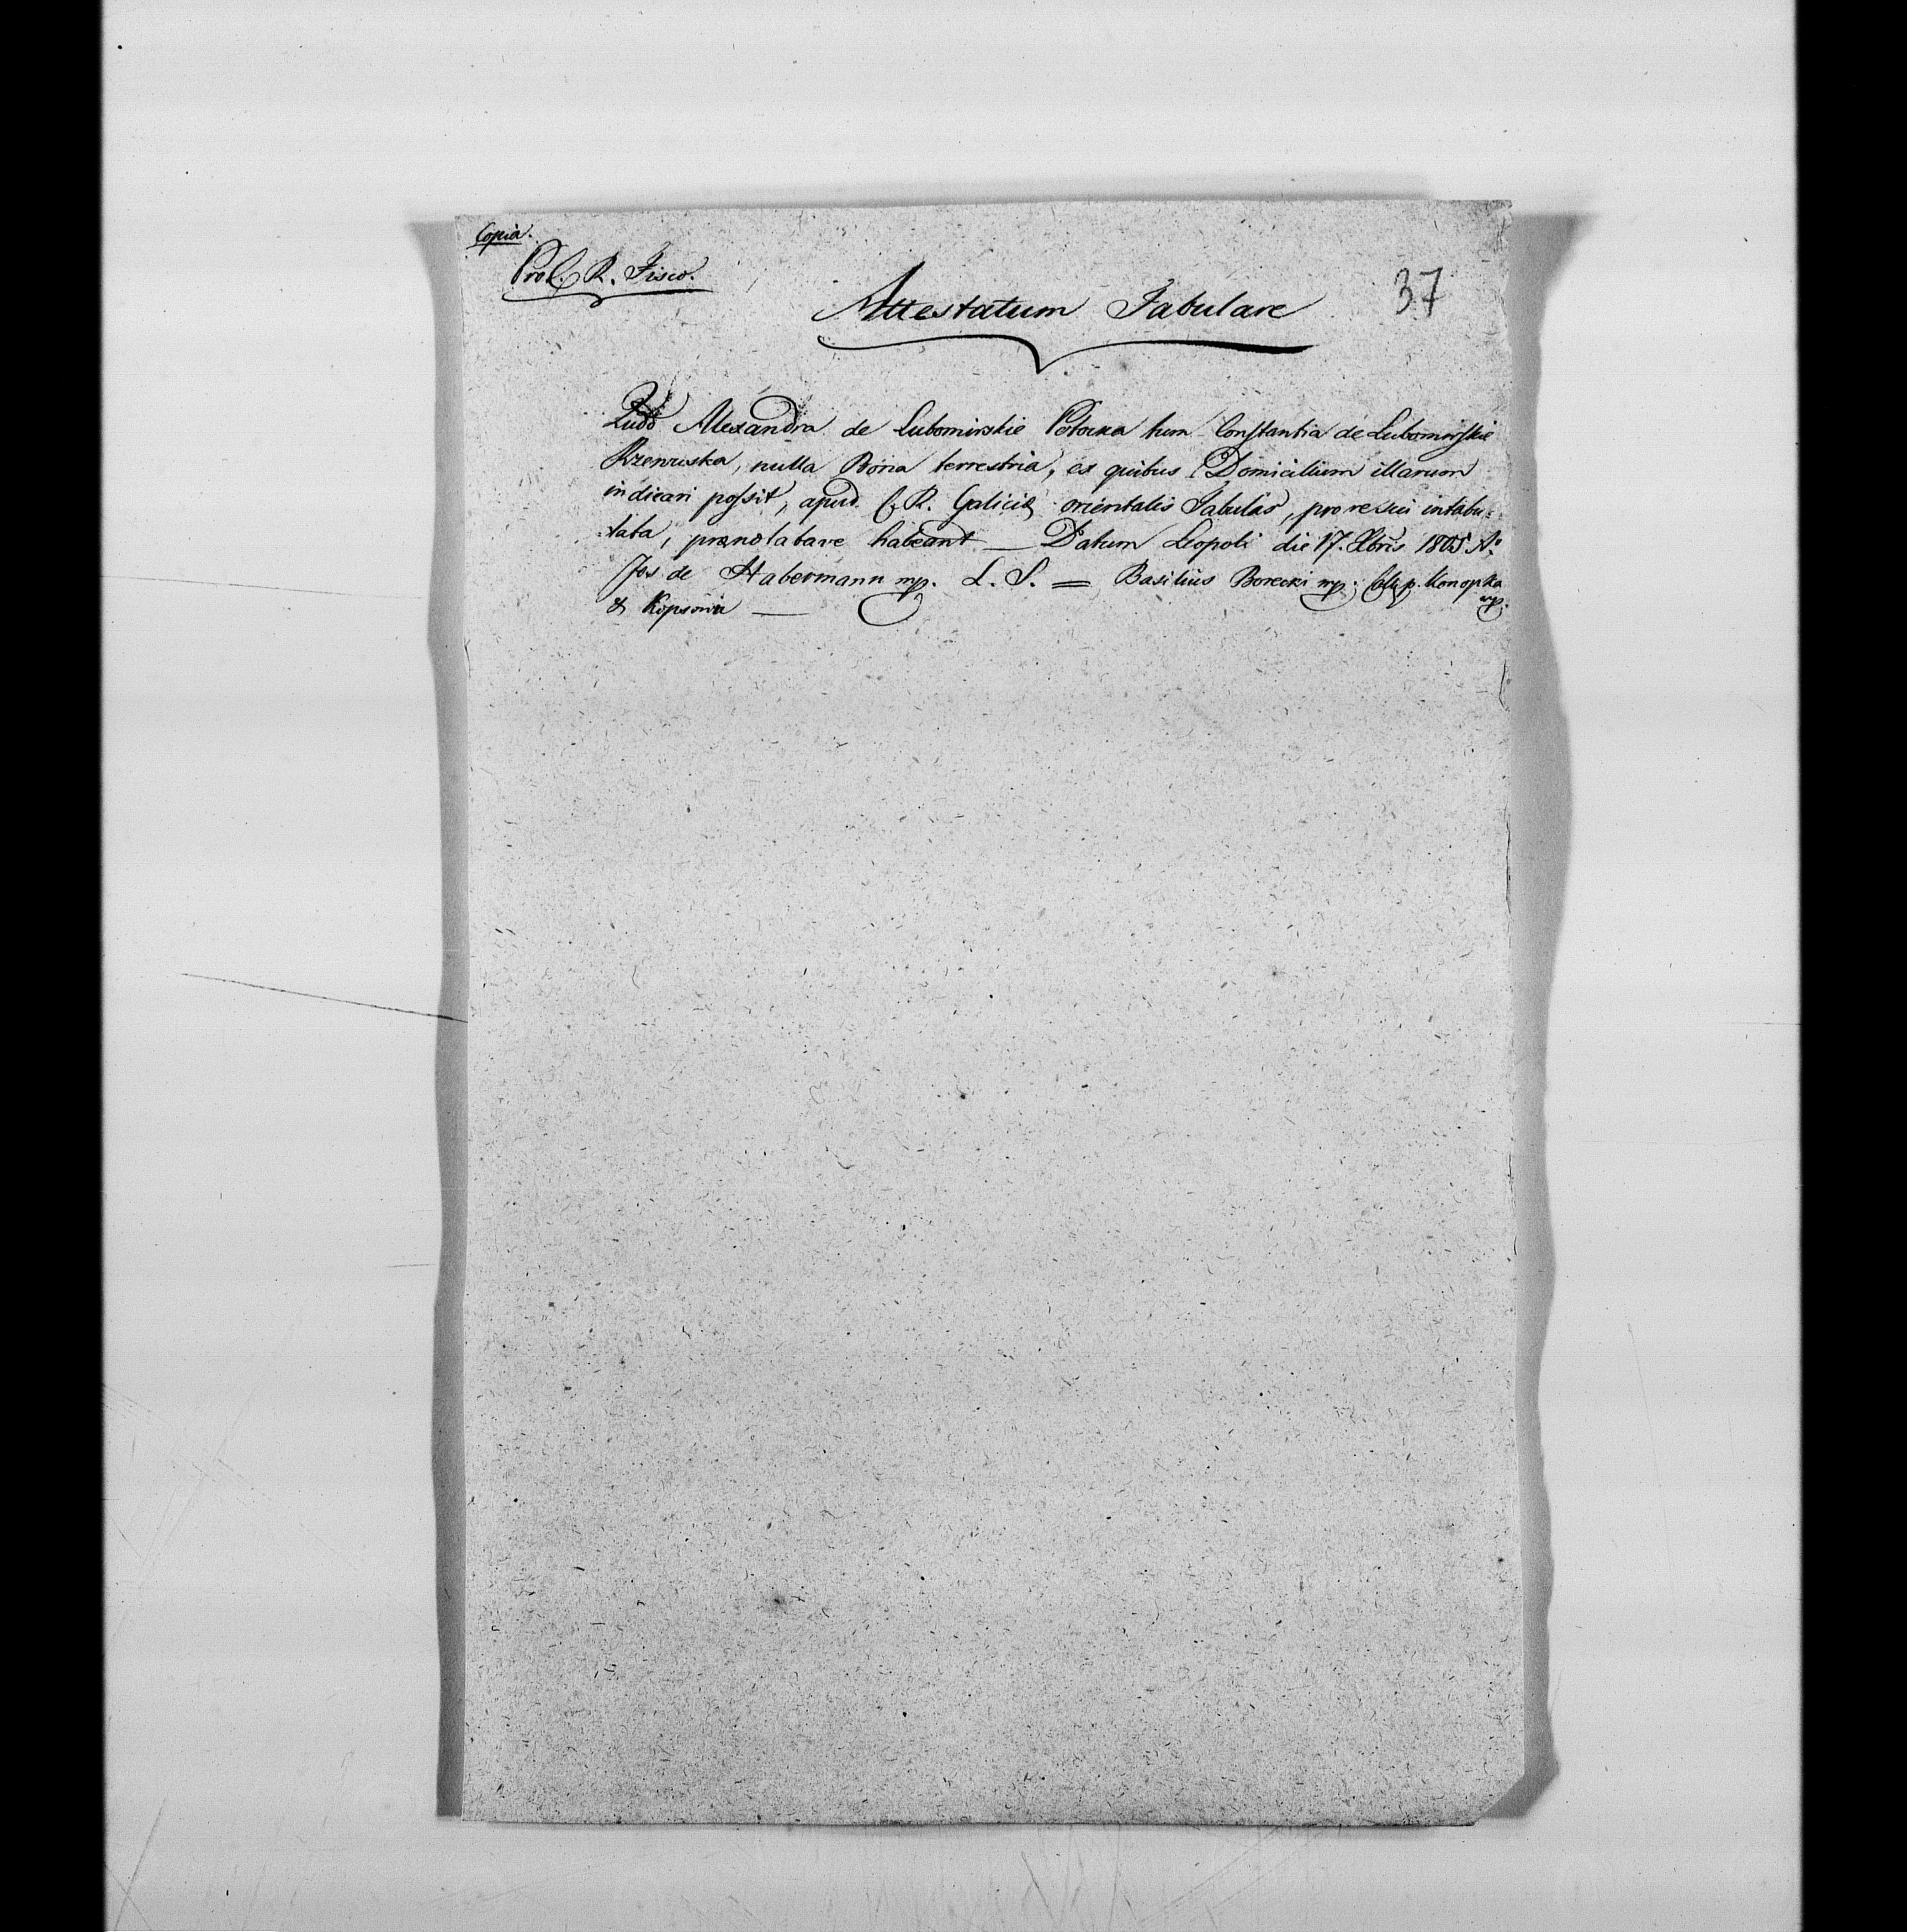 Copia.
Pro C. R. Fisco.
37
Attestatum Tabulare
Quod Alexandra de Lubomirskie Potocka tum Constantia de Lubomirskie
Rzewuska, nulla Bona terrestria, ex quibus Domicilium illarum
indicari possit, apud C. R. Galiciæ orientalis Tabulas, pro re sui intabu=
=lata, prænotatave habeant — Datum Leopoli die 17. Xbris 1805 Ao
Jos de Habermann mp. L. S. = Basilius Borecki mp. Konopka
mp.
&